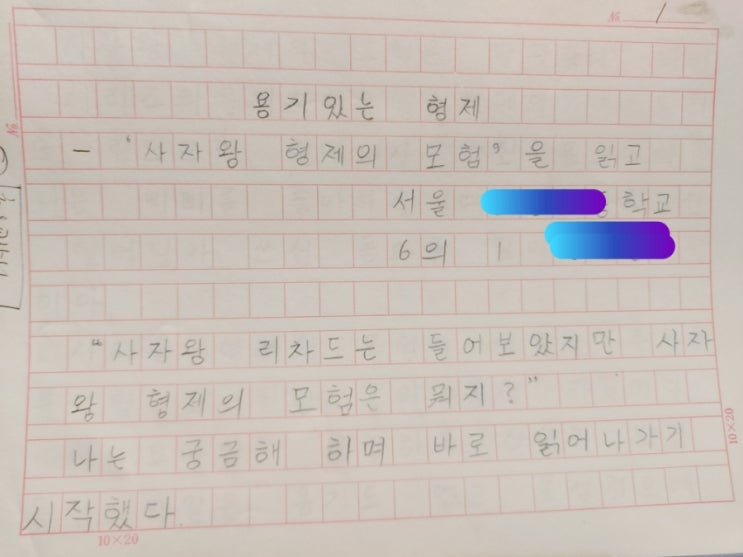 № 1
용기있는 형제
- '사자왕 형제의 모험'을 읽고
서울 학교
6의 1
"사자왕 리차드는 들어보았지만 사자
왕 형제의 모험은 뭐지?"
나는 궁금해 하며 바로 읽어나가기
시작했다.
10×20
10×20
№